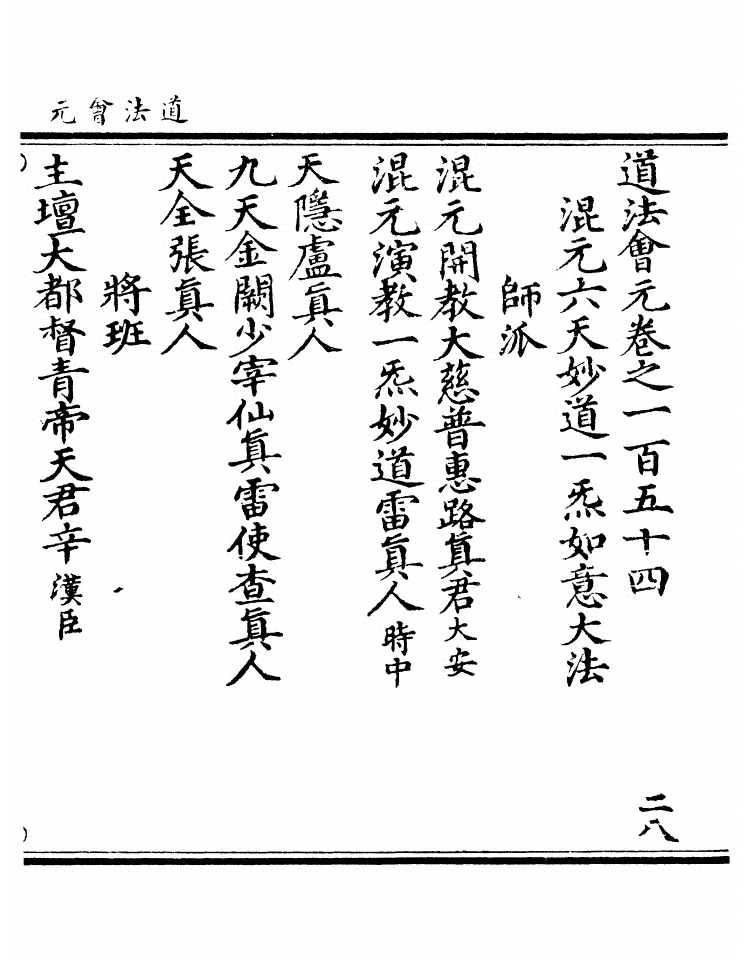 道法會元
道法會元卷之一百五十四
二八
混元六天妙道一炁如意大法
師派
混元開教大慈普惠路眞君大安
混元演教一炁妙道雷眞人時中
天隱盧眞人
九天金闕少宰仙眞雷使查眞人
天全張眞人
將班
主壇大都督青帝天君辛漢臣